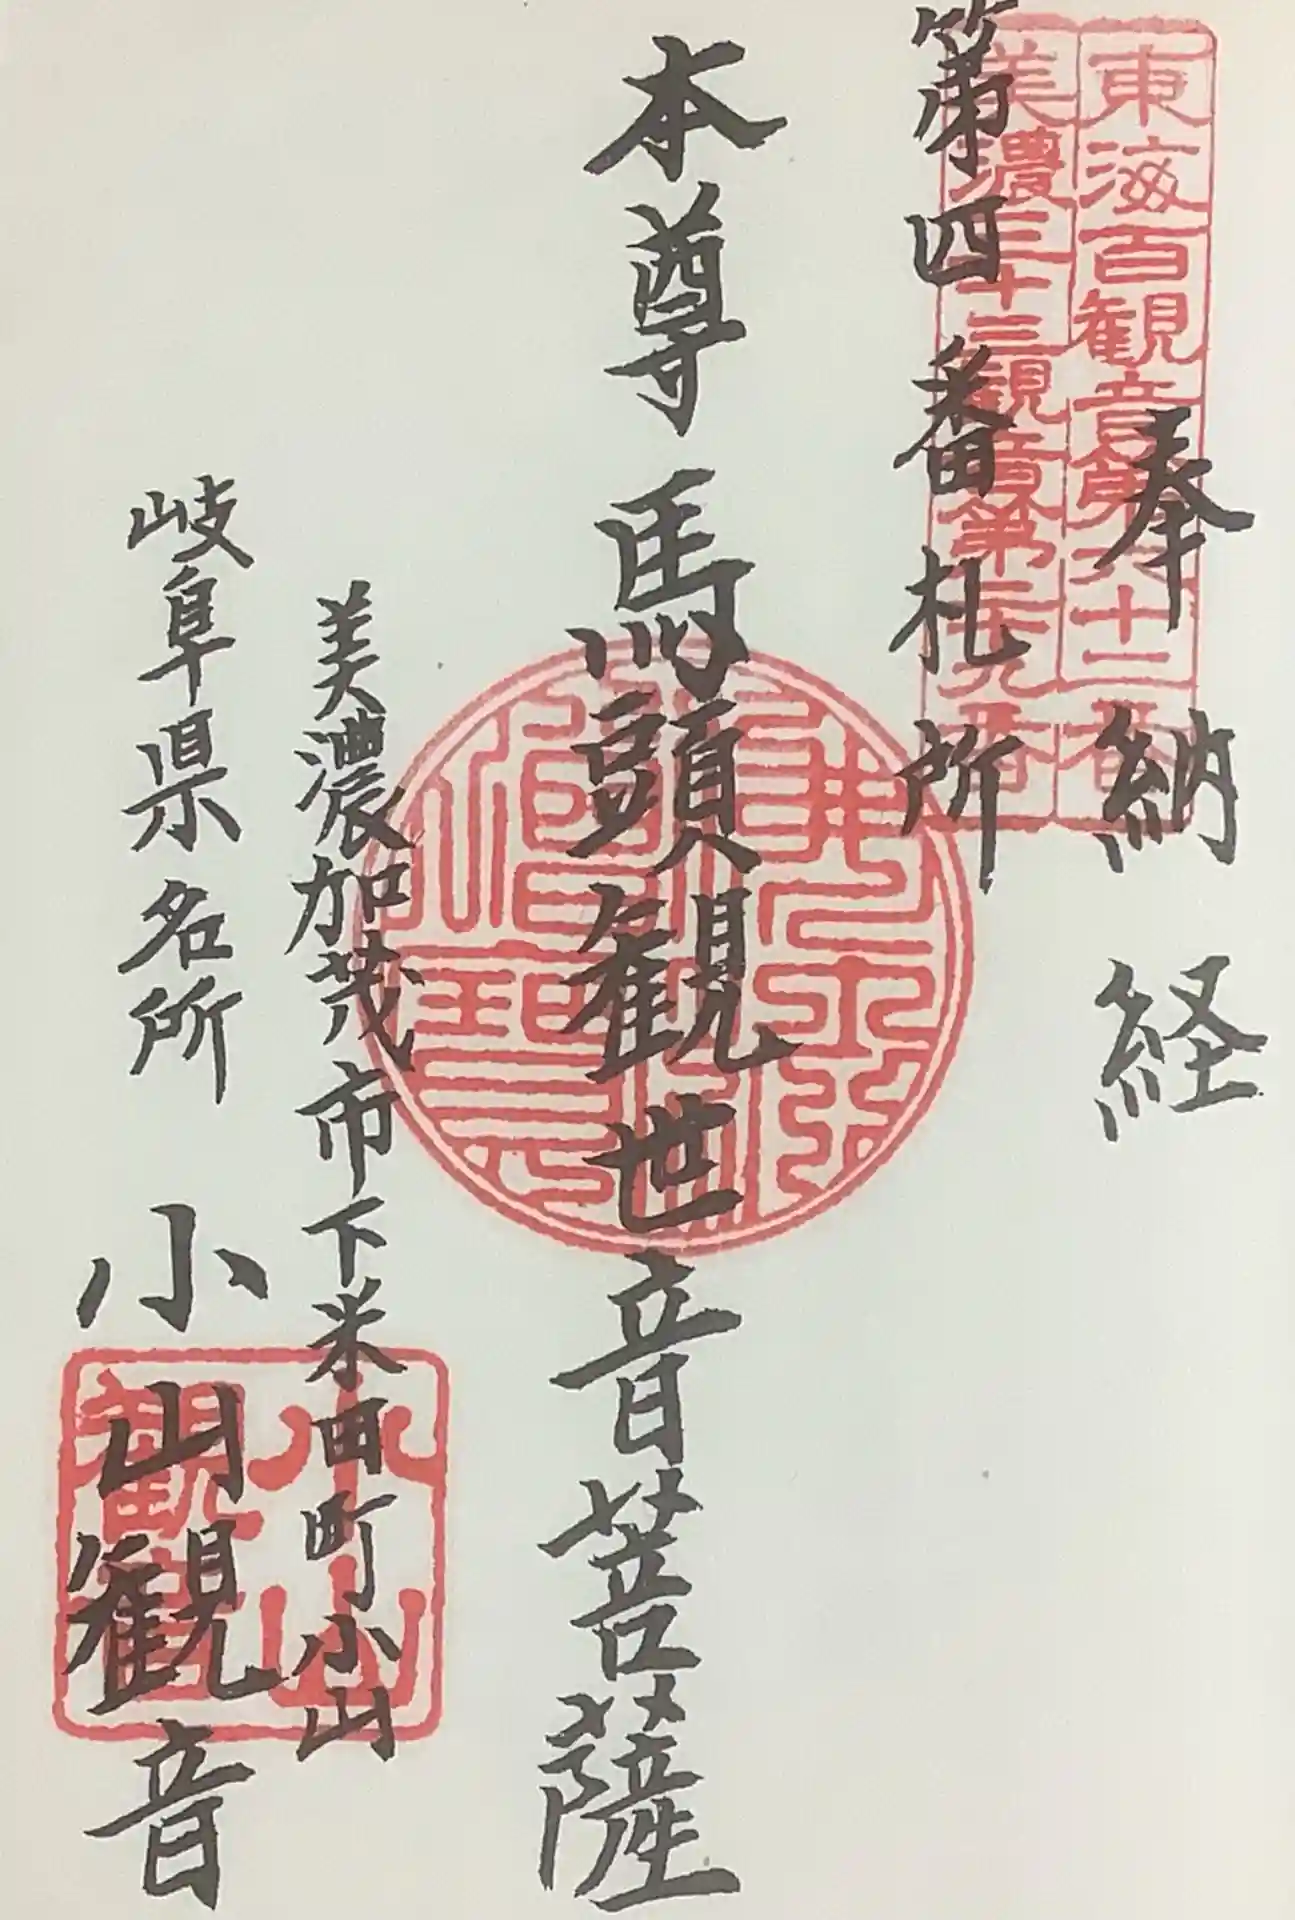 東海百観音第六十二番
美濃三十三観音第二十九番
奉納経
第四番札所
本尊馬頭観世音菩薩
美濃加茂市下米田町小山
岐阜県名所小山観音
小山
観音